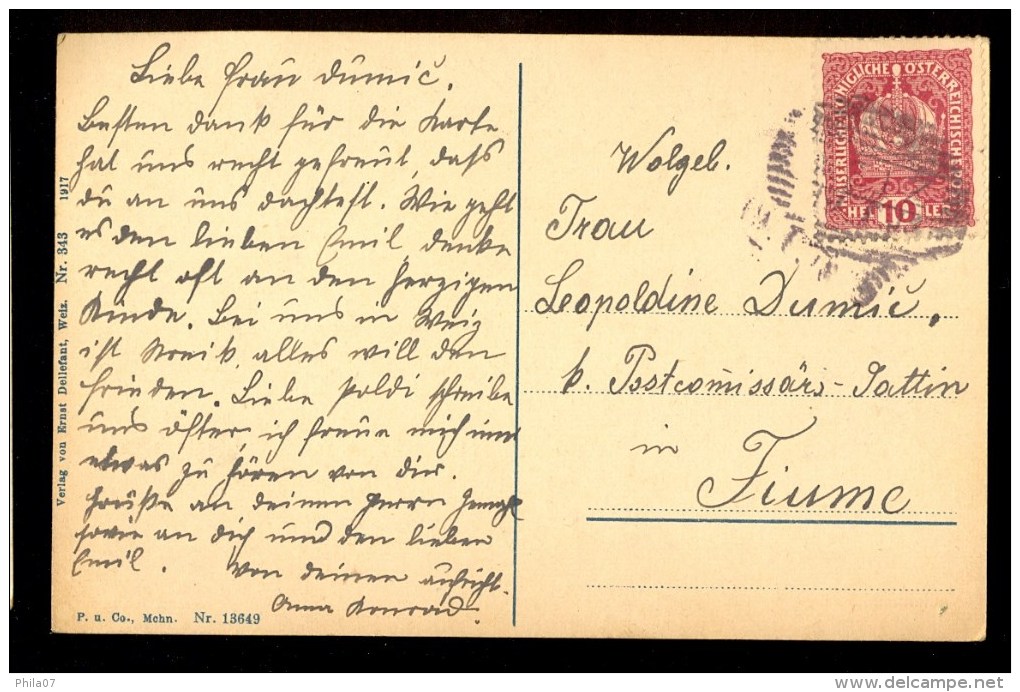 Liebe Frau Dumić.
Besten Dank für die Karte
hat uns recht gefreut, dass
du an uns dachtest. Wie geht
es den lieben Emil, denke
recht oft an den herzigen
Kinde. Bei uns in Weiz
ist Streik, alles will den
Frieden. Liebe Poldi schreibe
uns öfter, ich freue mich immer
etwas zu hören von dir.
Grüße an deinen Herrn Gemahl
sowie an dich und den lieben
Emil. Von deiner aufricht.
Anna Konrad.
Verlag von Ernst Dellefant, Weiz. Nr. 343 1917
P. u. Co., Mchn. Nr. 13649
KAISERLICHE KÖNIGLICHE ÖSTERREICHISCHE POST
10
HELLER
Wolgeb.
Frau
Leopoldine Dumić,
k. Postcom̄issärs-Gattin
in
Fiume
Phila07
delcampe.net